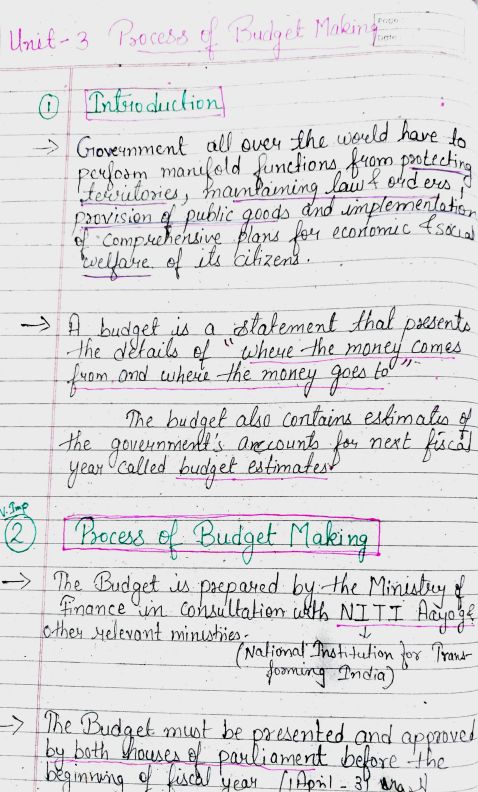 Unit-3 Process of Budget Making
Page
Date
① Introduction
→ Government all over the world have to
perform manifold functions from protecting
territories, maintaining law & orders,
provision of public goods and implementation
of comprehensive plans for economic & social
welfare of its citizens.
→ A budget is a statement that presents
the details of "where the money comes
from and where the money goes to"
The budget also contains estimates of
the government's accounts for next fiscal
year called budget estimates
V. Imp
② Process of Budget Making
→ The Budget is prepared by the Ministry of
Finance in consultation with NITI Aayog &
other relevant ministries.
↓
(National Institution for Trans-
forming India)
→ The Budget must be presented and approved
by both houses of parliament before the
beginning of fiscal year (1 April - 31